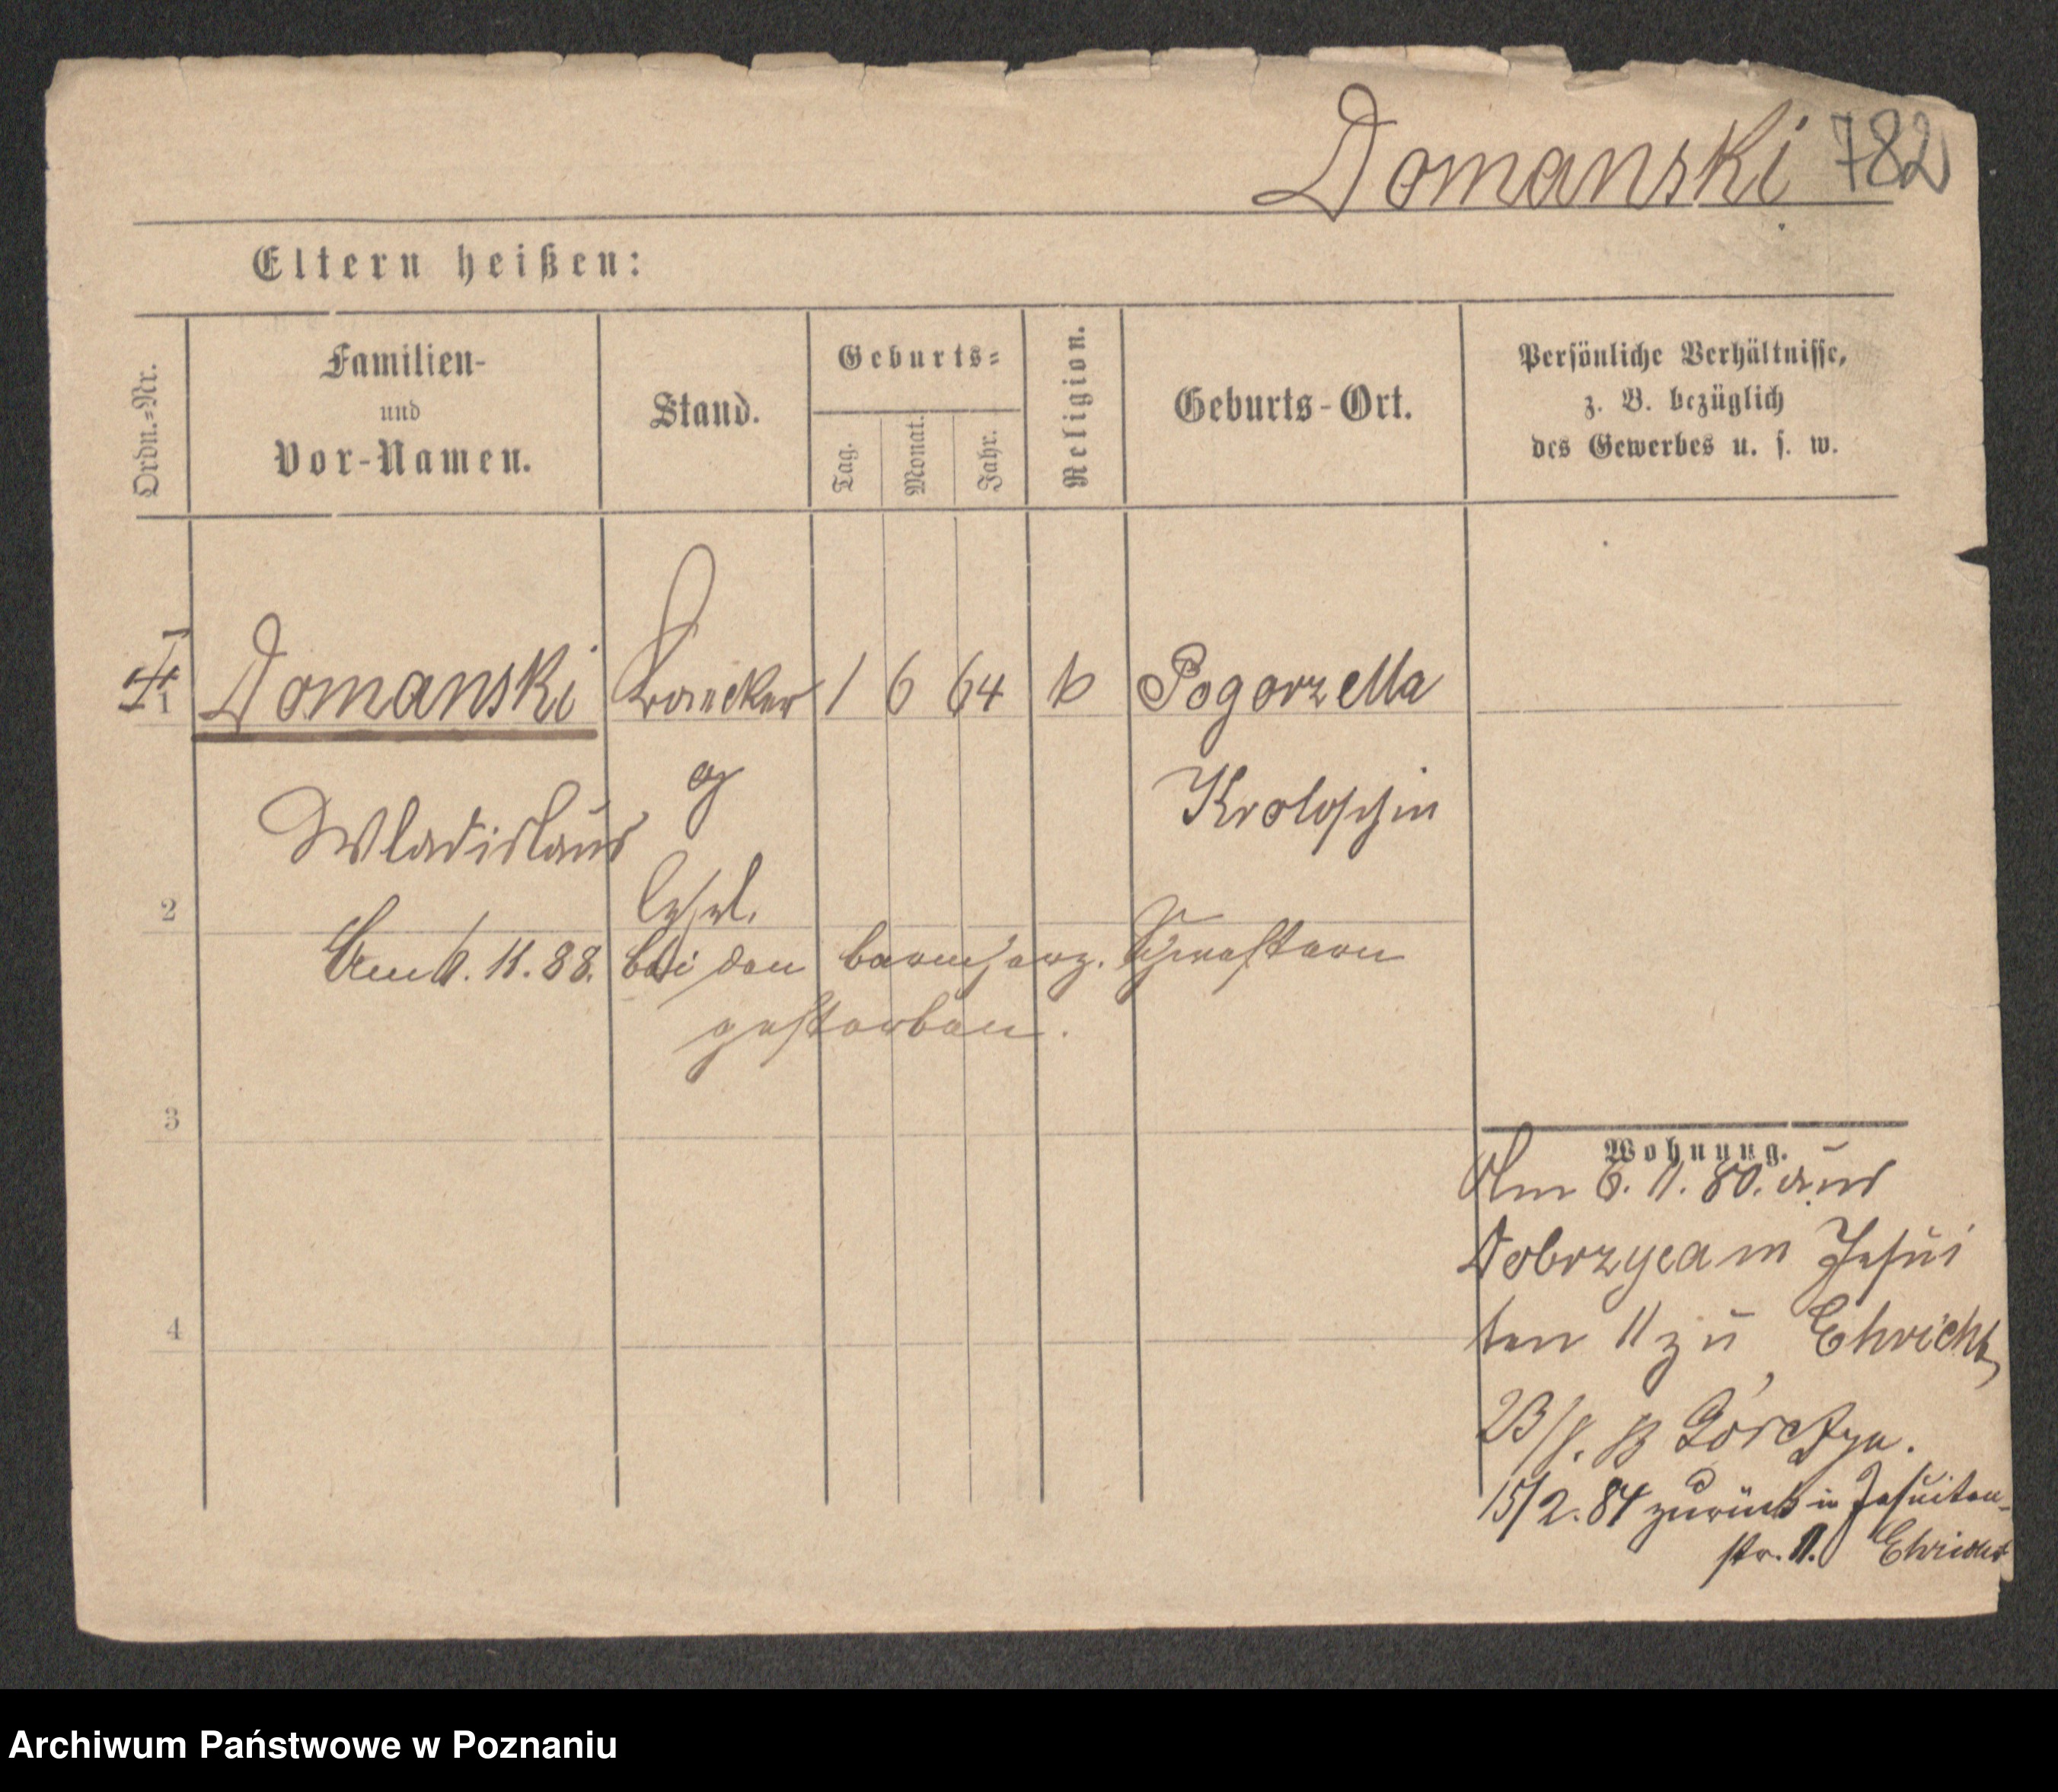 Domanski 782
Eltern heißen:
Ordn.=Nr.
Familien-
und
Vor-Namen.
Stand.
Geburts=
Tag.
Monat.
Jahr.
Religion.
Geburts-Ort.
Persönliche Verhältnisse,
z. B. bezüglich
des Gewerbes u. s. w.
1 Domanski 1 6 64 k Pogorzella
Wladislaus Krotoschin
2
Am 11. 88. bei den barmherz. Schwestern
gestorben.
3
4
Wohnung.
Am 6. 11. 80. aus
Dobrzyca in Jesui
ten 11 zu Ehricht
23/ Górczyn.
15/2. 84 zurück in Jesuiten-
str. 11. Ehricht
Archiwum Państwowe w Poznaniu